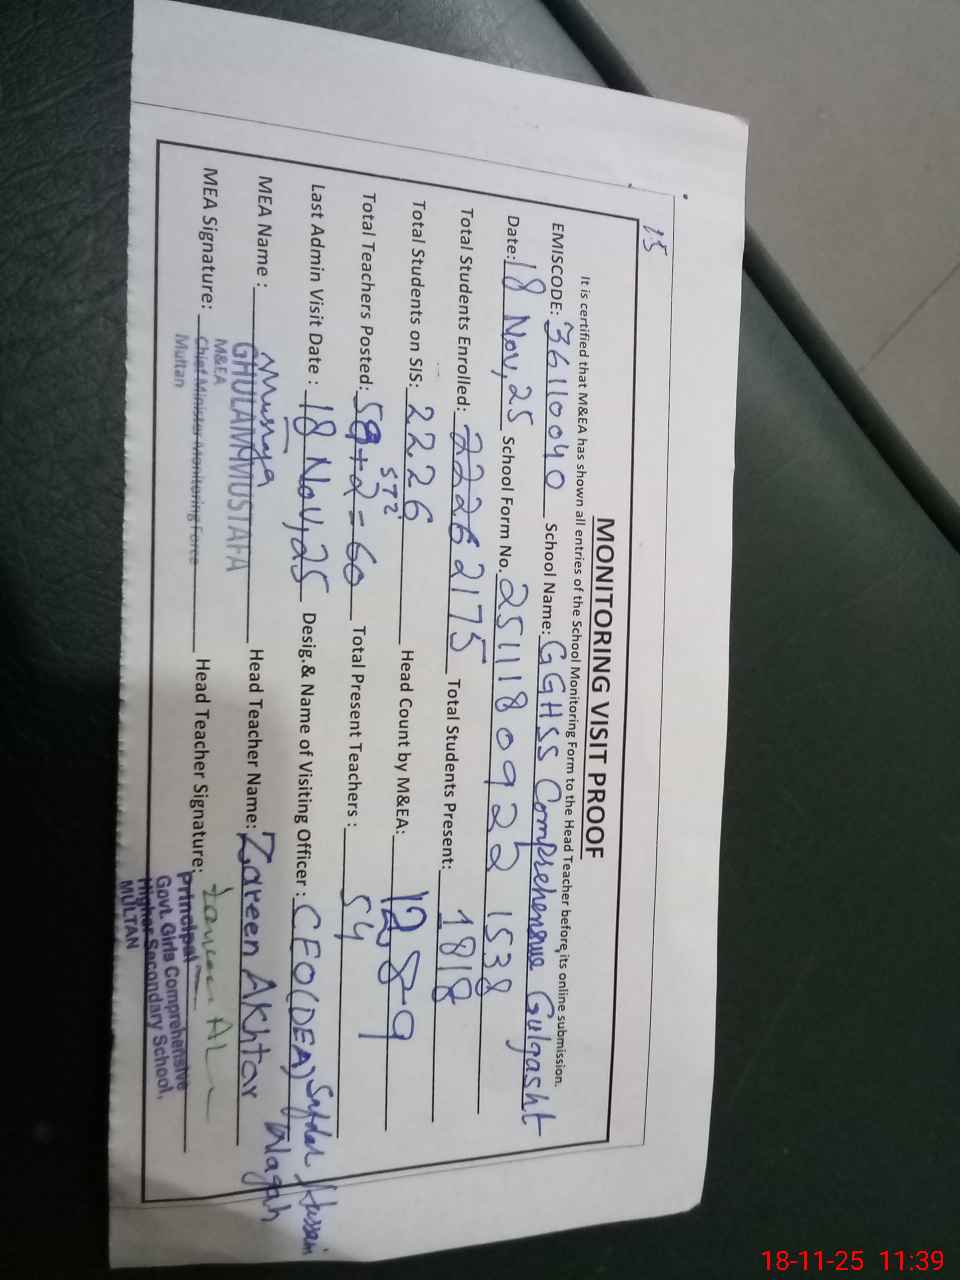 15
MONITORING VISIT PROOF
It is certified that M&EA has shown all entries of the School Monitoring Form to the Head Teacher before its online submission.
EMISCODE: 36110040 School Name: GGHSS Comprehensive Gulgasht
Date: 18 Nov, 25 School Form No. 2511180922 1538
Total Students Enrolled: 2226 2175 Total Students Present: 1818
Total Students on SIS: 2226 Head Count by M&EA: 1289
Total Teachers Posted: 58+2=60 Total Present Teachers: 54
Last Admin Visit Date: 18 Nov, 25 Desig.& Name of Visiting Officer: CEO(DEA) Safdar Hussain Wagah
MEA Name: GHULAM MUSTAFA Head Teacher Name: Zareen Akhtar
M&EA
MEA Signature: Chief Minister Monitoring Force Head Teacher Signature:
Multan
Principal
Govt. Girls Comprehensive
Higher Secondary School,
MULTAN
18-11-25 11:39